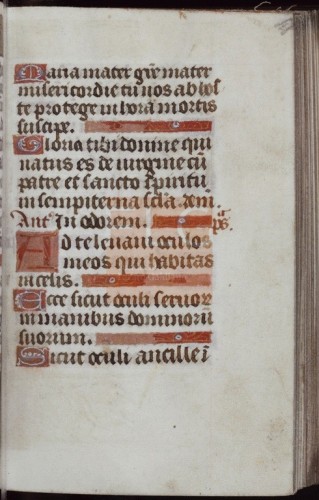 Maria mater gr̄e mater
misericordie tu nos ab hos
te protege in hora mortis
suscipe.
Gloria tibi domine qui
natus es de virgine cū
patre et sancto spiritu
in sempiterna scl̄a. am̄.
Ant̄. In odorem. ps̄.
Ad te levavi oculos
meos qui habitas
in celis.
Ecce sicut oculi servoꝝ
in manibus dominorū
suorum.
Sicut oculi ancille ī